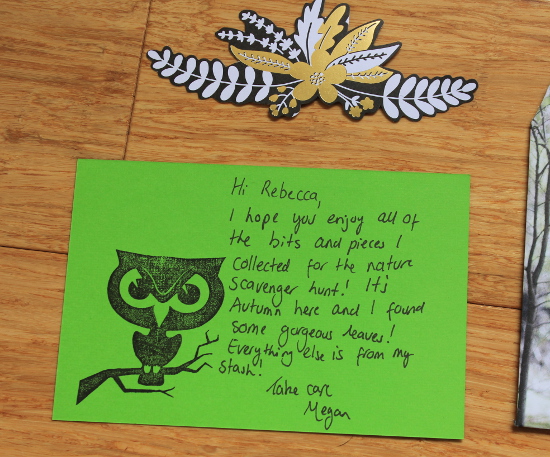 Hi Rebecca,
I hope you enjoy all of
the bits and pieces I
collected for the nature
scavenger hunt! It's
Autumn here and I found
some gorgeous leaves!
Everything else is from my
stash!
Take care
Megan